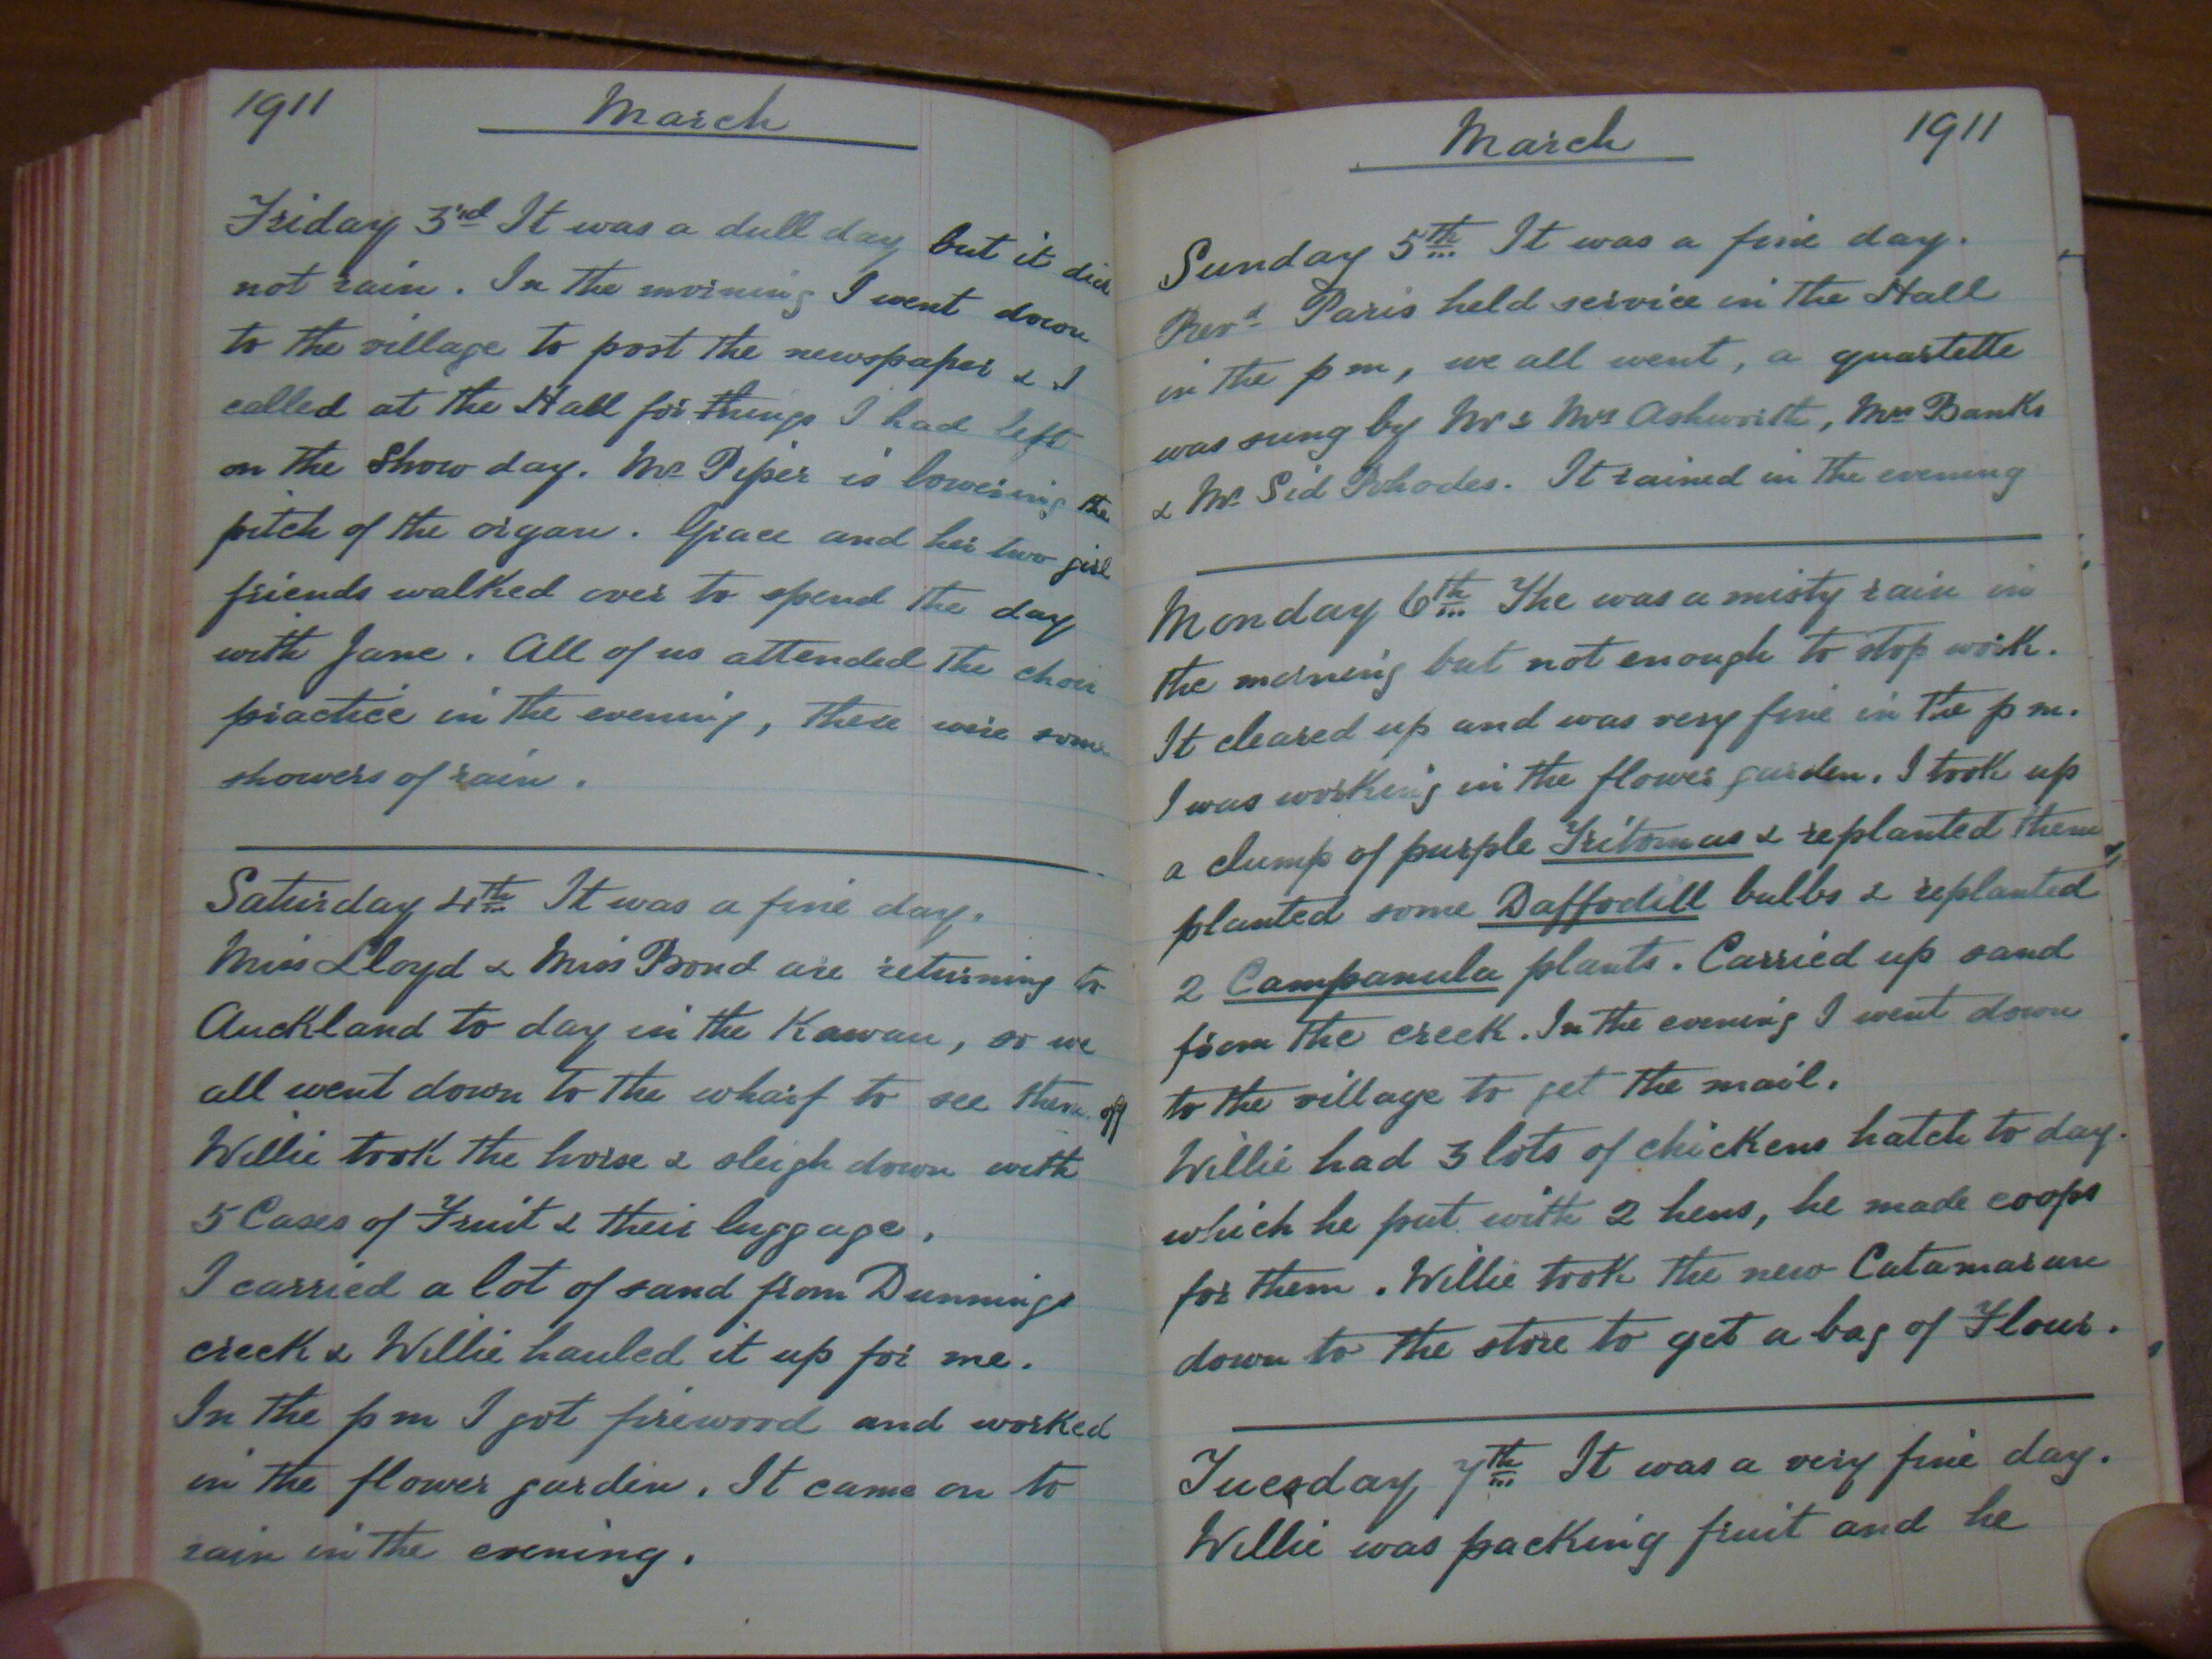 1911 March
Friday 3rd It was a dull day but it did
not rain. In the morning I went down
to the village to post the newspaper & I
called at the Hall for things I had left
on the Show day. Mr Piper is lowering the
pitch of the organ. Grace and her two girl
friends walked over to spend the day
with Jane. All of us attended the choir
practice in the evening, there were some
showers of rain.
Saturday 4th It was a fine day.
Miss Lloyd & Miss Bond are returning to
Auckland to day in the Kawau, so we
all went down to the wharf to see them off
Willie took the horse & sleigh down with
5 Cases of Fruit & their luggage.
I carried a lot of sand from Dunnings
creek & Willie hauled it up for me.
In the pm I got firewood and worked
in the flower garden. It came on to
rain in the evening.
March 1911
Sunday 5th It was a fine day.
Revd Paris held service in the Hall
in the pm, we all went, a quartette
was sung by Mr & Mrs Ashworth, Mrs Banks
& Mr Sid Rhodes. It rained in the evening
Monday 6th The was a misty rain in
the morning but not enough to stop work.
It cleared up and was very fine in the pm.
I was working in the flower garden. I took up
a clump of purple Tritomas & replanted them,
planted some Daffodill bulbs & replanted
2 Campanula plants. Carried up sand
from the creek. In the evening I went down
to the village to get the mail.
Willie had 3 lots of chickens hatch to day.
which he put with 2 hens, he made coops
for them. Willie took the new Catamaran
down to the store to get a bag of Flour.
Tuesday 7th It was a very fine day.
Willie was packing fruit and he